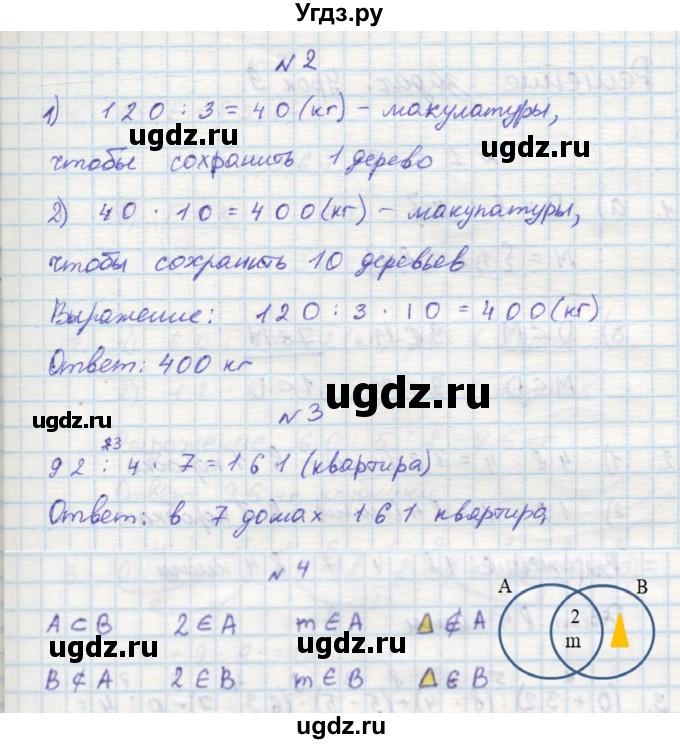 Угдз.ру
№2
1) 120 : 3 = 40 (кг) – макулатуры,
ugdz.ru ugdz.ru
чтобы сохранить 1 дерево
2) 40 · 10 = 400 (кг) – макулатуры,
ugdz.ru
чтобы сохранить 10 деревьев
Выражение: 120 : 3 · 10 = 400 (кг)
Ответ: 400 кг
ugdz.ru
ugdz.ru №3
23
92 : 4 · 7 = 161 (квартира)
ugdz.ru
Ответ: в 7 домах 161 квартира
ugdz.ru
№4
A B
A ⊂ B 2 ∈ A m ∈ A ∉ A
2
m
ugdz.ru ugdz.ru
B ⊄ A 2 ∈ B m ∈ B ∈ B
ugdz.ru